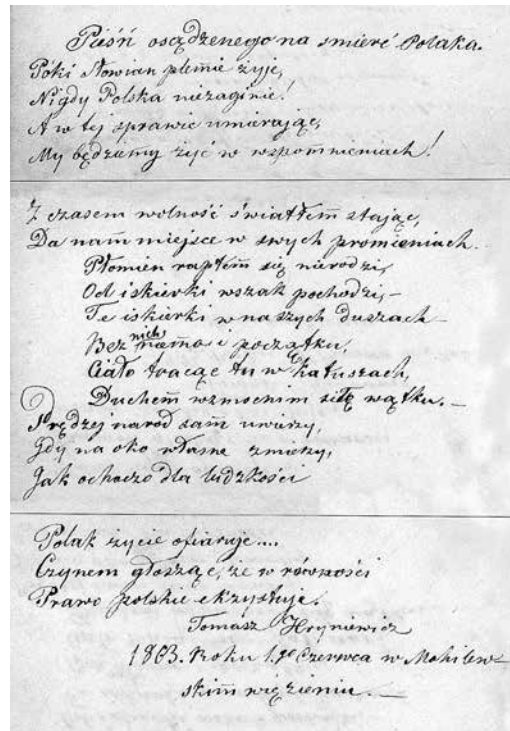 Pieśń osądzonego na śmierć Polaka.
Póki Słowian plemie żyje,
Nigdy Polska niezaginie!
A w tej sprawie umierając,
My będziemy żyć w wspomnieniach!
Z czasem wolność światłem stając,
Da nam miejsce w swych promieniach.
Płomień raptem się nierodzi,
Od iskierki wszak pochodzi, –
Te iskierki w naszych duszach –
Bez nich niema i początku,
Ciało tracąc tu w katuszach,
Duchem wzmocnim siłę wątku. –
Prędzej naród sam uwierzy,
Gdy na oko własne zmierzy,
Jak ochoczo dla ludzkości
Polak życie ofiaruje....
Czynem głosząc, że w równości
Prawo polskie ekzystuje.
Tomasz Hryniewicz
1863. Roku 1.go Czerwca w Mohilew-
skim więzieniu. –